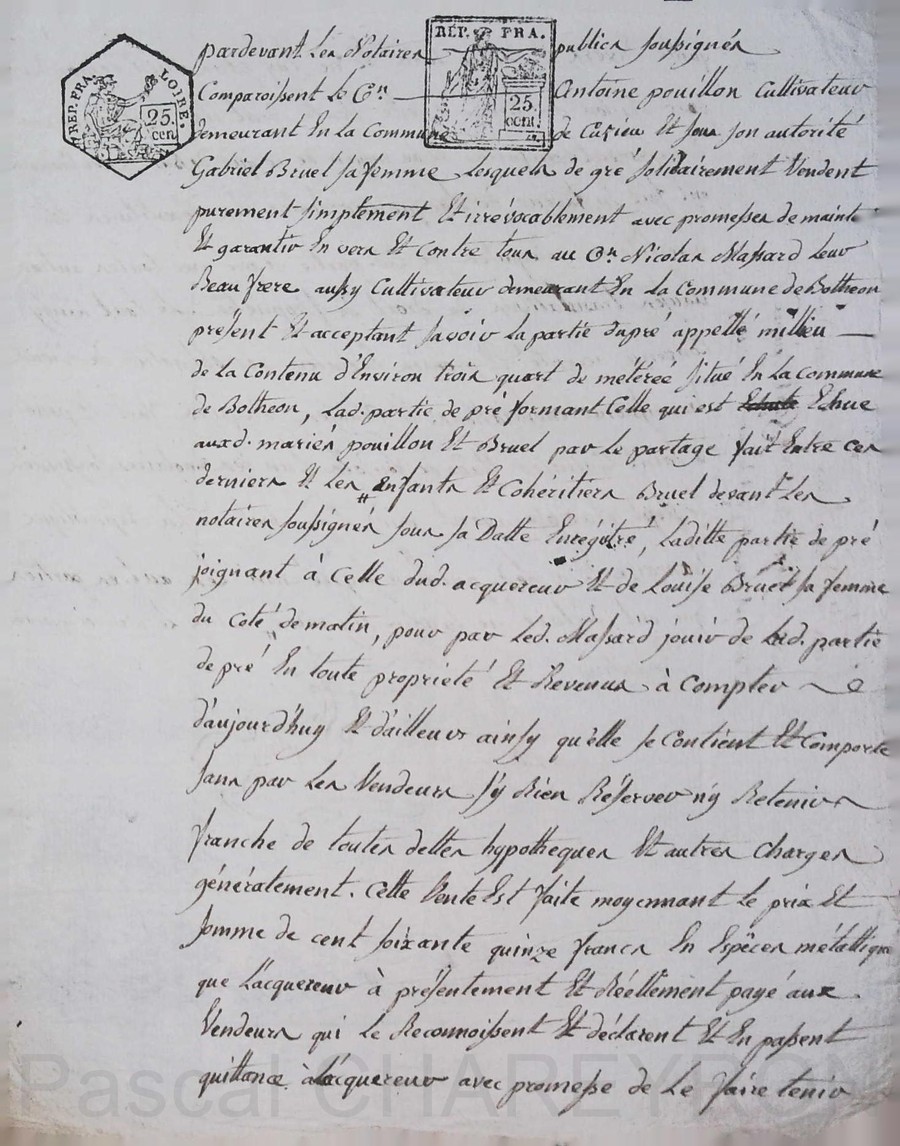 RÉP. FRA.
25. cen.
REP. FRA. LOIRE.
25. cen
pardevant Les Notaires publics soussignés
Comparoissent Le Cen. Antoine pouillon Cultivateur
demeurant En la Commune de Cuzieu Et sous son autorité
Gabriel Bruel sa femme Lesquels de gré solidairement Vendent
purement simplement Et irrévocablement avec promesses de maint
Et garantir En vers Et Contre tous au Cen. Nicolas Massard Leur
Beau frere aussy Cultivateur demeurant En La Commune de Botheon
présent Et acceptant savoir La partie du pré appellé millieu
de la Contenu d'Environ trois quart de méterée situé En La Commune
de Botheon, Lad. partie de pré formant Celle qui est Echue
auxd. mariés pouillon Et Bruel par Le partage fait Entre ces
derniers Et Les Enfants Et Cohéritiers Bruel devant Les
notaires soussignés sous sa Datte Enrégitré, Laditte partie de pré
joignant à Celle dud. acquereur Et de Louise Bruel sa femme
du coté de matin, pour par Led. Massard jouir de Lad. partie
de pré En toute proprieté Et Revenus à Compter
d'aujourd'huy Et d'ailleurs ainsy qu'elle se Contient Et Comporte
sans par Les Vendeurs s'y Rien Réserver ny Retenir
franche de toutes dettes hypotheques Et autres Charges
généralement. Cette Vente Est faite moyennant Le prix Et
somme de cent soixante quinze francs En Espèces métallique
que L'acquereur à présentement Et Réellement payé aux
Vendeurs qui Le Reconnoissent Et déclarent Et En passent
quittance à L'acquereur avec promesse de Le faire tenir
Pascal CHAREYRON